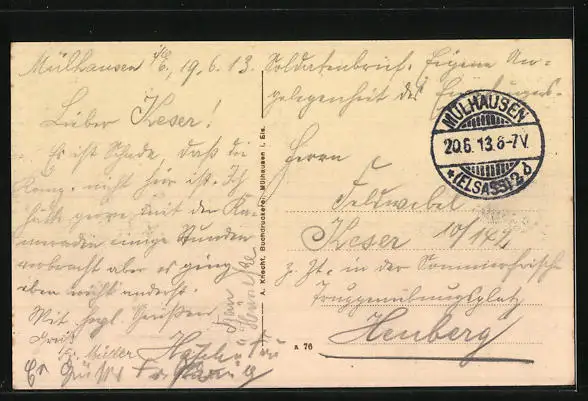 Mülhausen i/E., 19.6.13.
Lieber Keser!
Es ist Schade, daß die
Komp. nicht hier ist. Ich
hätte gerne mit den Ka-
meraden einige Stunden
verbracht aber es ging
eben nicht anders.
Mit herzl. Grüßen
Müller
Soldatenbrief. Eigene An-
gelegenheit des Empfängers.
Herrn
Feldwebel
Keser 10/142
z. Zt. in der Sommerfrische
Truppenübungsplatz
Heuberg
MÜLHAUSEN
20.6.13.6-7V.
*(ELSASS)2b
A. Knecht, Buchdruckerei, Mülhausen i. Els.
A 76